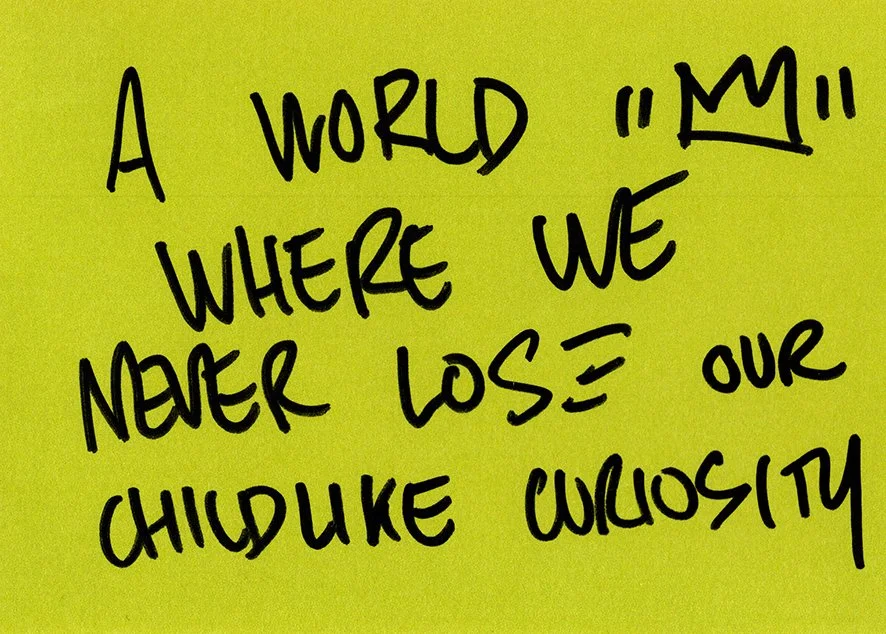 A WORLD " "
WHERE WE
NEVER LOSE OUR
CHILDLIKE CURIOSITY